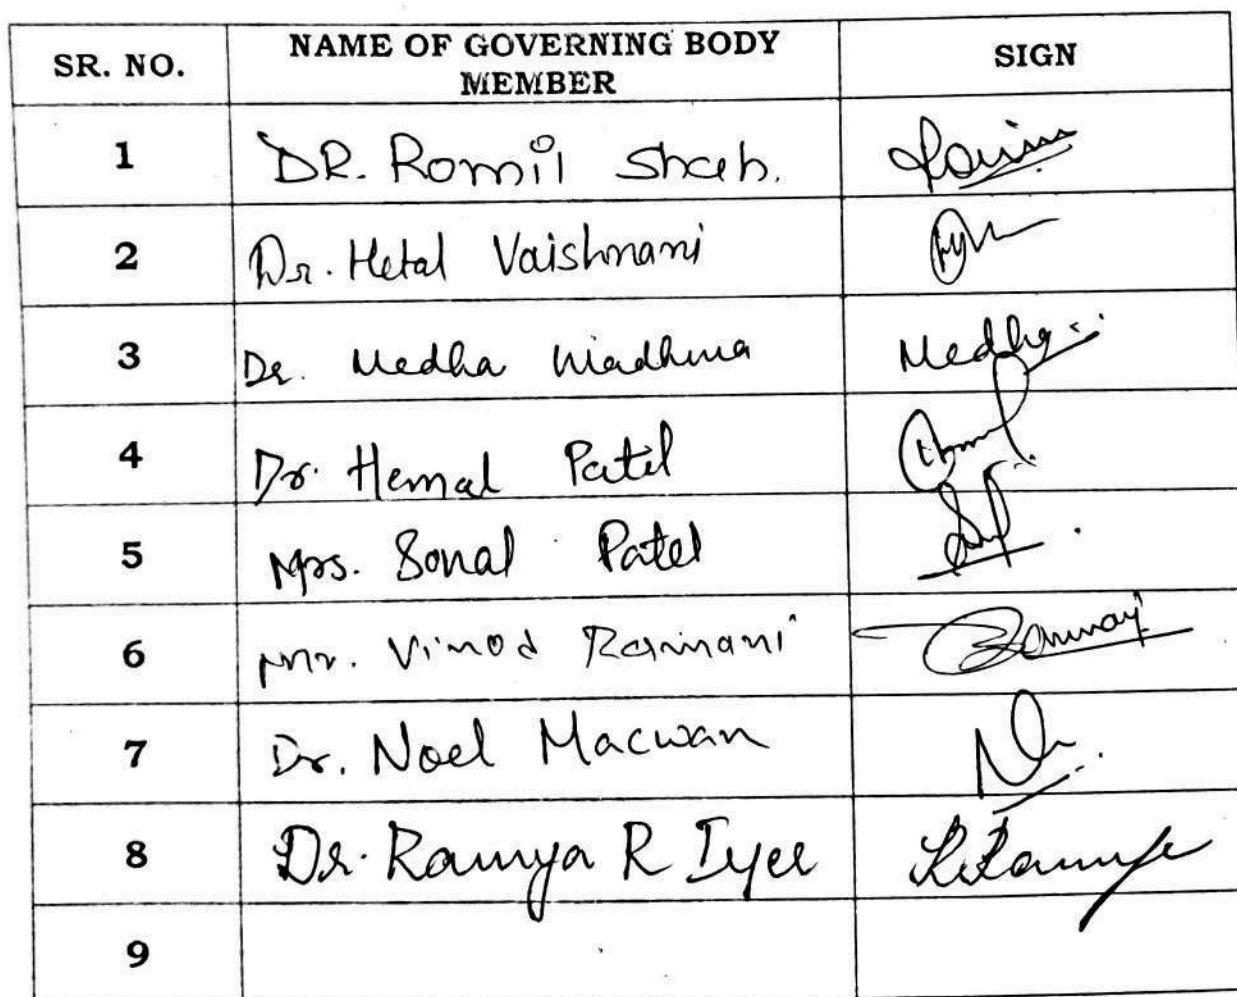 SR. NO. NAME OF GOVERNING BODY MEMBER SIGN
1 DR. Romil Shah.
2 Dr. Hetal Vaishnani
3 Dr. Medha Wadhwa Medha
4 Dr. Hemal Patel
5 Mrs. Sonal Patel
6 Mr. Vinod Ramnani
7 Dr. Noel Macwan
8 Dr. Ramya R Iyer R Ramya
9